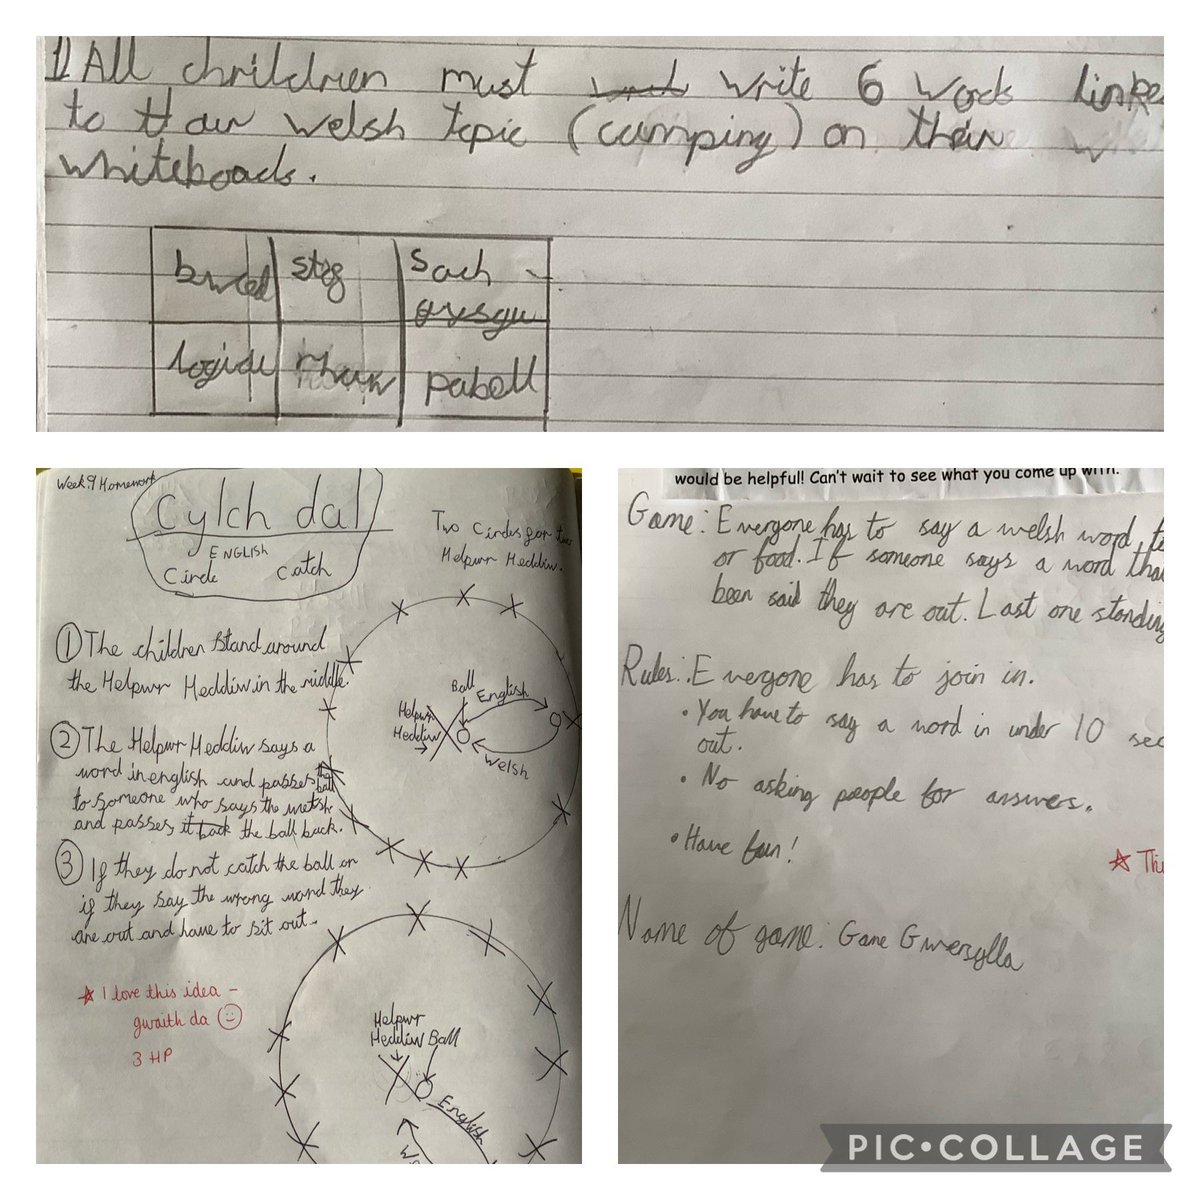 1) All chrildren must write 6 words linke
to thair welsh topic (camping) on their
whiteboads.
bwced
stôf
Sach
gysgu
logiau
rhaw
pabell
Week 9 Homework
Cylch dal
ENGLISH
Circle Catch
Two Circles for two
Helpwr Heddiw.
① The children Stand around
the Helpwr Heddiw in the middle.
② The Helpwr Heddiw says a
word in english and passes the ball
to someone who says the welsh
and passes it back the ball back.
③ If they do not catch the ball or
if they say the wrong word they
are out and have to sit out.
☆ I love this idea -
gwaith da ☺
3 HP
Ball
English
Helpwr
Heddiw
Welsh
Helpwr
Heddiw Ball
English
We
would be helpful! Can't wait to see what you come up with.
Game: Everyone has to say a welsh word, te
or food. If someone says a word tha
been said they are out. Last one standing
Rules: Everyone has to join in.
• You have to say a word in under 10 sec
out.
• No asking people for answers.
• Have fun!
☆ Thi
Name of game: Gane Gwersylla
PIC•COLLAGE